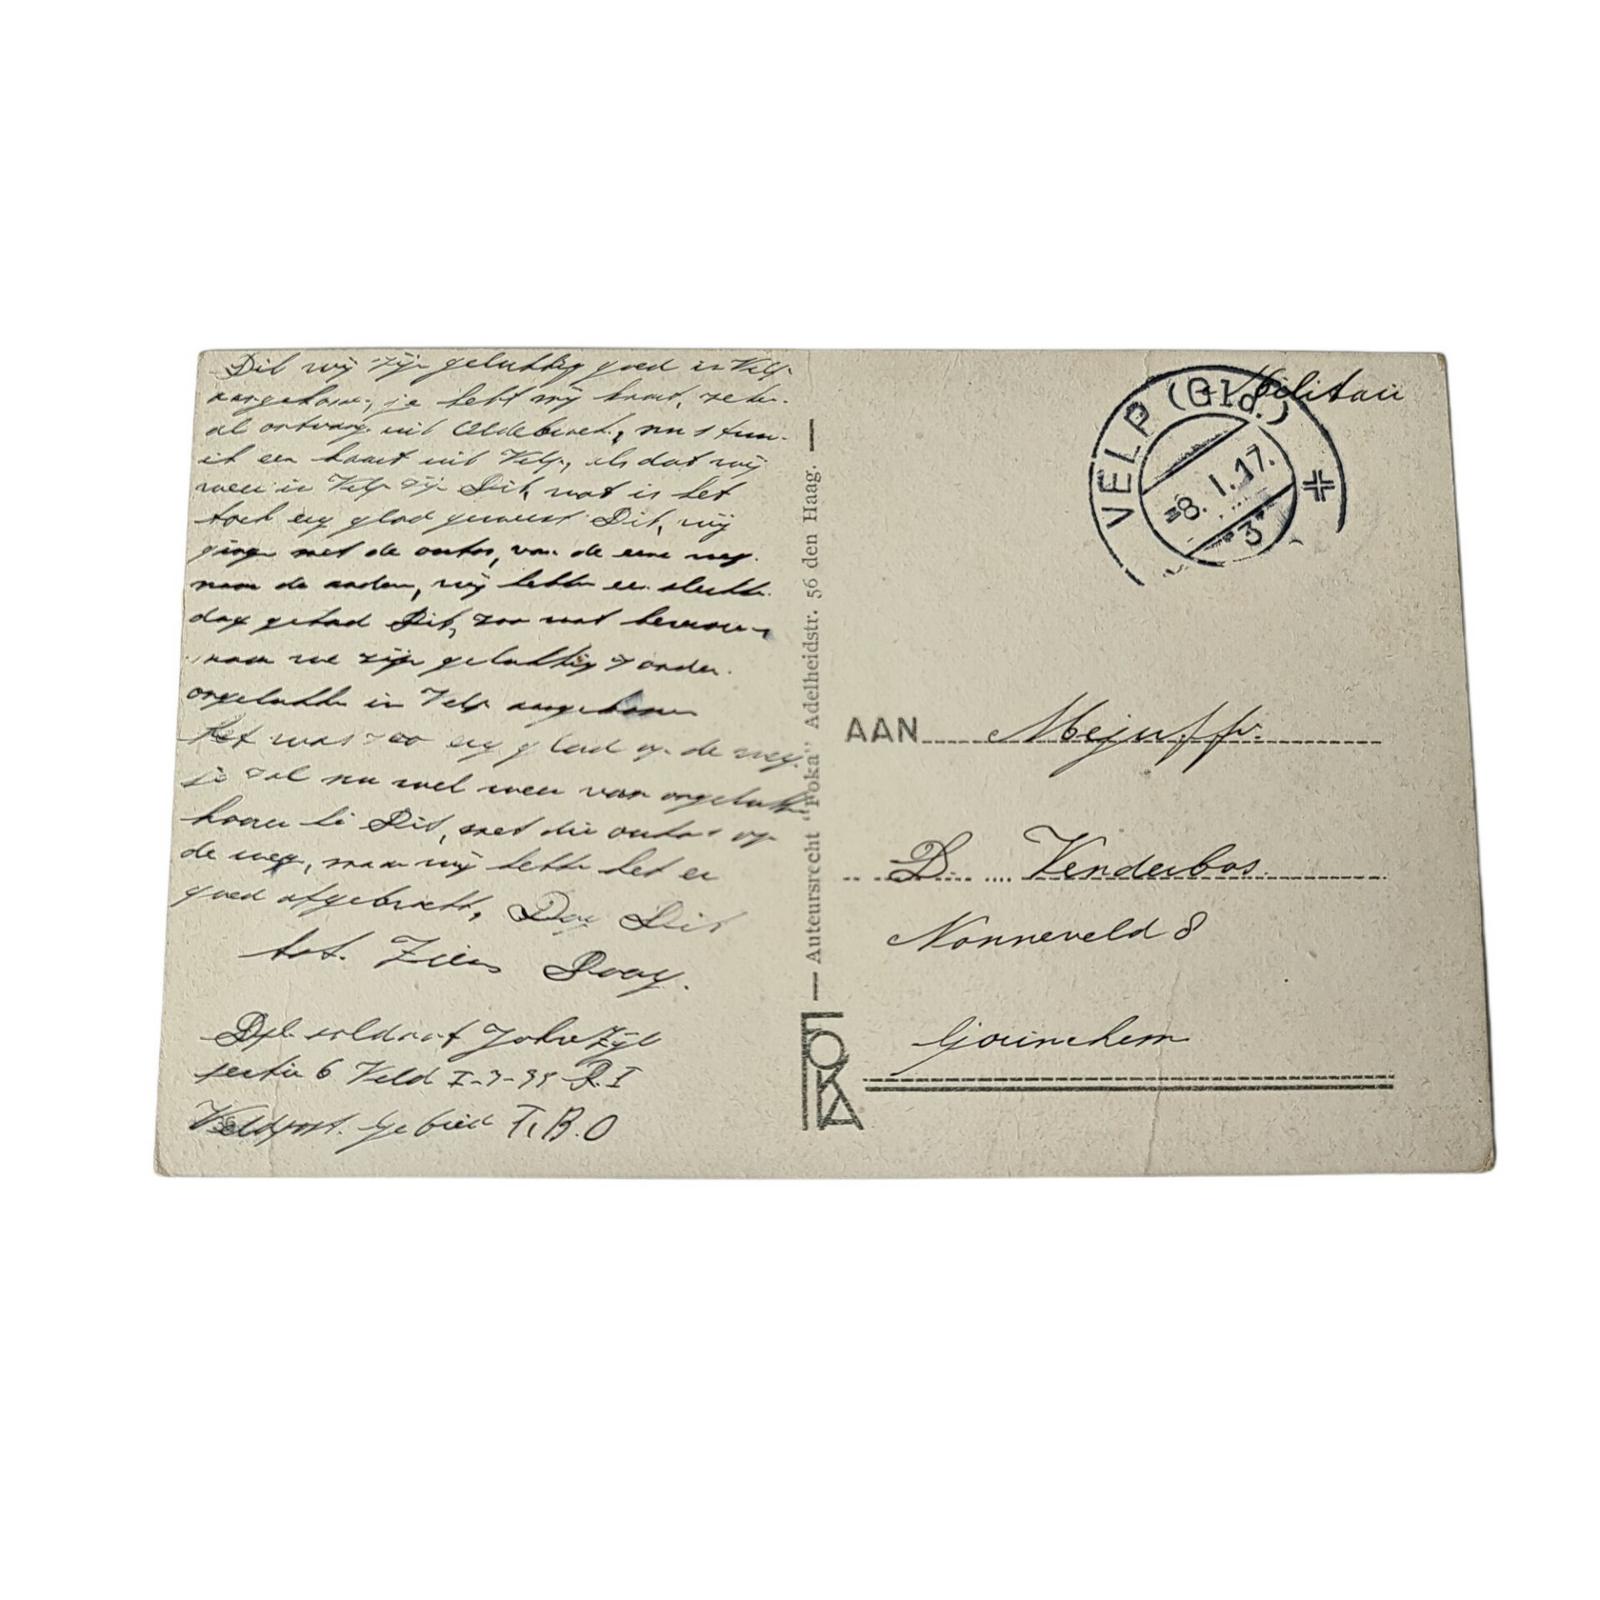 Dit wij zijn gelukkig goed in Velp
aangekomen, je hebt mij kaart, zeker
al ontvang uit Oldebroek, nu stuur
ik een kaart uit Velp, als dat wij
weer in Velp zijn Dit, wat is het
toch erg glad geweest Dit, wij
ginge met de autos, van de eene weg
naar de andere, wij hebbe een slechte
dag gehad Dit, zoo wat
maar we zijn gelukkig zonder
ongelukke in Velp aangekomen
Het was zoo erg glad op de weg.
je zal nu wel weer van ongelukke
hooren hé Dit, met die autos op
de weg, maar wij hebbe het er
goed afgebracht, Dag Dit
tot Ziens Daag.
Dpl. soldaat Joh v Zijl
sectie 6 Veld I-3-35 R.I
Veldpost. Gebied T.B.O
Auteursrecht "Foka" Adelheidstr. 56 den Haag.
FOKA
Militair
VELP (Gld.)
-8.1.17.
3
AAN Mejuffr.
D. Venderbos.
Nonneveld 8
Gorinchem